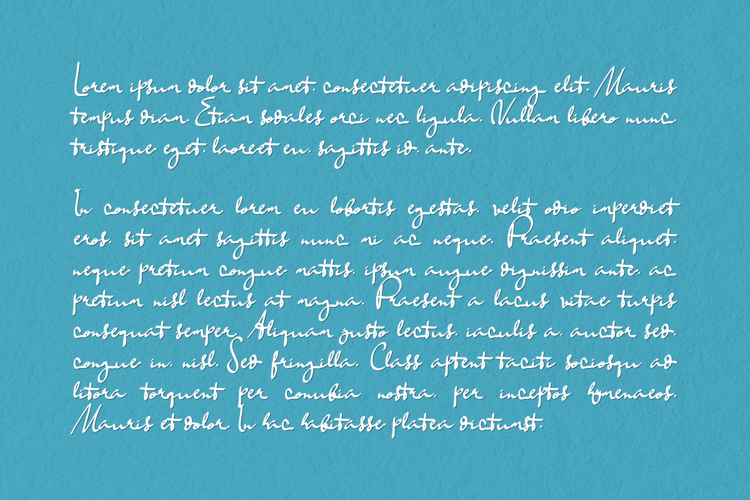 Lorem ipsum dolor sit amet, consectetuer adipiscing elit. Mauris
tempus diam. Etiam sodales orci nec ligula. Nullam libero nunc,
tristique eget, laoreet eu, sagittis id, ante.

In consectetuer lorem eu lobortis egestas, velit odio imperdiet
eros, sit amet sagittis nunc mi ac neque. Praesent aliquet,
neque pretium congue mattis, ipsum augue dignissim ante, ac
pretium nisl lectus at magna. Praesent a lacus vitae turpis
consequat semper. Aliquam justo lectus, iaculis a, auctor sed,
congue in, nisl. Sed fringilla. Class aptent taciti sociosqu ad
litora torquent per conubia nostra, per inceptos hymenaeos.
Mauris et dolor. In hac habitasse platea dictumst.